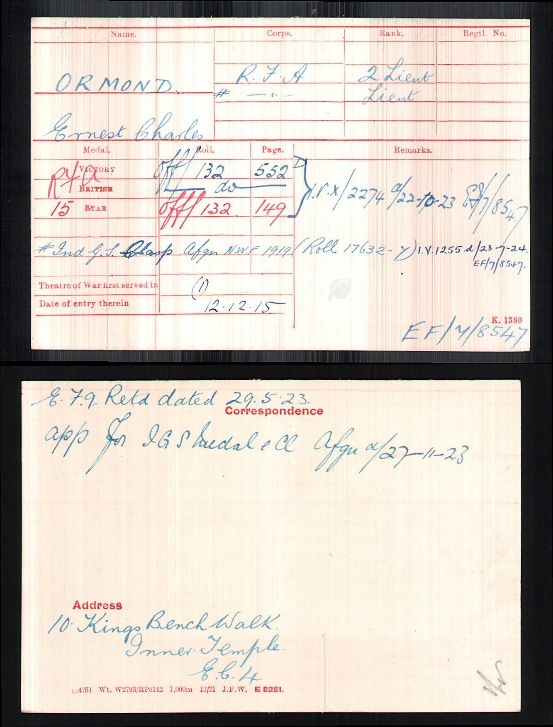 Name. Corps. Rank. Regtl. No.
ORMOND. R.F.A 2 Lieut
# —"— Lieut
Ernest Charles
Medal. Roll. Page. Remarks.
VICTORY RFA off/132 552
BRITISH do I.V.X/2274 d/22-10-23 EF/7/8547
15 STAR off/132 149
# Ind G.S. Clasp Afgn NWF 1919 (Roll 17632-Y) I.V.1255 d/23-7-24.
EF/7/8547.
Theatre of War first served in (1)
Date of entry therein 12.12.15
K. 1380
EF/7/8547
E.F.9. Retd dated 29.5.23.
Correspondence
app for I G S Medal & Cl Afgn d/27-11-23
Address
10. Kings Bench Walk.
Inner Temple.
E.C.4
Wt. W2795/RP6142 1,000m 12/21 J.F.W. E 8281.